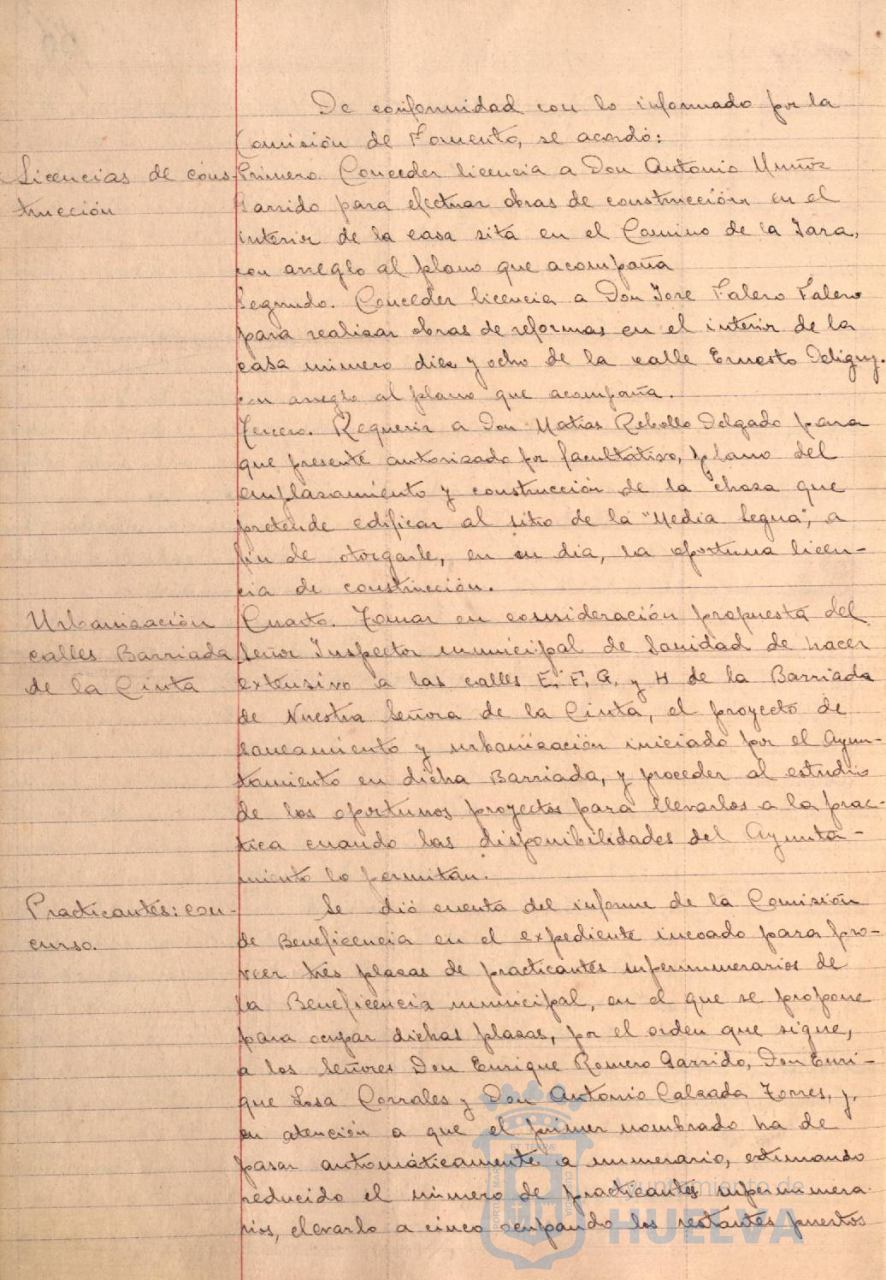 De conformidad con lo informado por la
Comisión de Fomento, se acordó:
Licencias de cons-
trucción
Primero. Conceder licencia a Don Antonio Muñoz
Garrido para efectuar obras de construcción en el
interior de la casa sita en el Camino de la Jara,
con arreglo al plano que acompaña
Segundo. Conceder licencia a Don Jose Falero Falero
para realizar obras de reformas en el interior de la
casa número diez y ocho de la calle Ernesto Deligny.
con arreglo al plano que acompaña.
Tercero. Requerir a Don Matias Rebollo Delgado para
que presente autorizado por facultativo, plano del
emplazamiento y construcción de la choza que
pretende edificar al sitio de la "Media Legua", a
fin de otorgarle, en su dia, la oportuna licen-
cia de construcción.
Urbanización
calles Barriada
de la Cinta
Cuarto. Tomar en consideración propuesta del
Señor Inspector municipal de Sanidad de hacer
extensivo a las calles E, F, G, y H de la Barriada
de Nuestra Señora de la Cinta, el proyecto de
saneamiento y urbanización iniciado por el Ayun-
tamiento en dicha Barriada, y proceder al estudio
de los oportunos proyectos para llevarlos a la prac-
tica cuando las disponibilidades del Ayunta-
miento lo permitan.
Practicantes: con-
curso.
Se dió cuenta del informe de la Comisión
de Beneficencia en el expediente incoado para pro-
veer tres plazas de practicantes supernumerarios de
la Beneficencia municipal, en el que se propone
para ocupar dichas plazas, por el orden que sigue,
a los Señores Don Enrique Romero Garrido, Don Enri-
que Losa Corrales y Don Antonio Calzada Torres, y,
en atención a que el primer nombrado ha de
pasar automáticamente a numerario, estimando
reducido el número de practicantes supernumera-
rios, elevarlo a cinco ocupando los restantes puestos
Ayuntamiento de
HUELVA